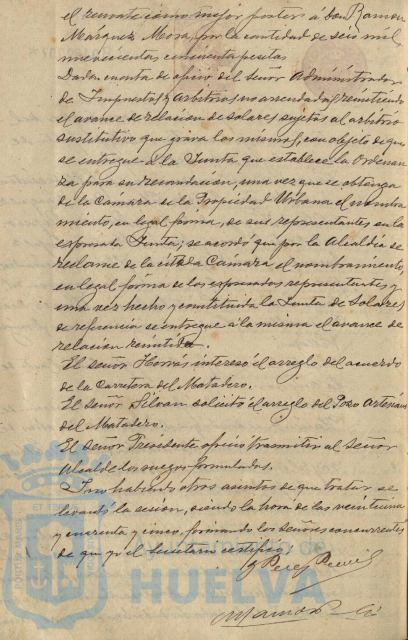 el remate como mejor postor á don Ramon
Márquez Mora, por la cantidad de seis mil
novecientas cincuenta pesetas
Dada cuenta de oficio del señor Administrador
de Impuestos y Arbitrios no arrendados remitiendo
el avance de relacion de solares sujetos al arbitrio
sustitutivo que grava los mismos, con objeto de que
se entregue á la Junta que establece la Ordenan
za para su recaudación, una vez que se obtenga
de la Cámara de la Propiedad Urbana el nombra
miento, en legal forma, de sus representantes en la
expresada Junta; se acordó que por la Alcaldía se
reclame de la citada Cámara el nombramiento,
en legal forma de los expresados representantes y
una vez hecho y constituida la Junta de Solares
de referencia se entregue á la misma el avance de
relación remitido.
El señor interesó el arreglo del acuerdo
de la Carretera del Matadero.
El señor Silvan solicitó el arreglo del Pozo Artesiano
del Matadero.
El señor Presidente ofreció trasmitir al señor
Alcalde los ruegos formulados.
I no habiendo otros asuntos de que tratar se
levantó la sesión, siendo la hora de las veintiuna
y cuarenta y cinco, firmando los señores concurrentes
de que yo el Secretario certifico.
HUELVA